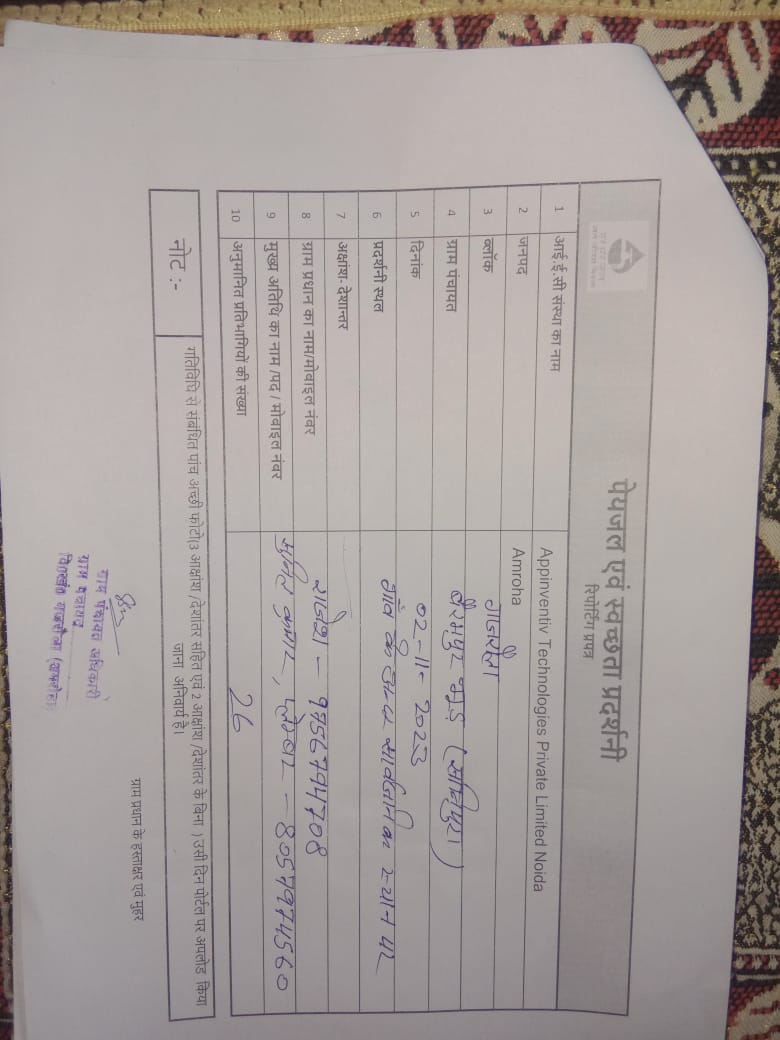 पेयजल एवं स्वच्छता प्रदर्शनी
रिपोर्टिंग प्रपत्र
1 आई.ई.सी संस्था का नाम Appinventiv Technologies Private Limited Noida
2 जनपद Amroha
3 ब्लॉक गजरौला
4 ग्राम पंचायत
5 दिनांक 02-11-2023
6 प्रदर्शनी स्थल गाँव के मध्य सार्वजनिक स्थान पर
7 अक्षांश- देशान्तर
8 ग्राम प्रधान का नाम/मोवाइल नंवर राजेश - 9756794708
9 मुख्य अतिथि का नाम /पद / मोवाइल नंवर कुमार, - 8057974560
10 अनुमानित प्रतिभागियों की संख्या 26
नोट :- गतिविधि से संबंधित पांच अच्छी फोटो(3 आक्षांश /देशांतर सहित एवं 2 आक्षांश /देशांतर के बिना ) उसी दिन पोर्टल पर अपलोड किया
जाना अनिवार्य है।
ग्राम प्रधान के हस्ताक्षर एवं मुहर
ग्राम पंचायत अधिकारी
ग्राम पंचायत